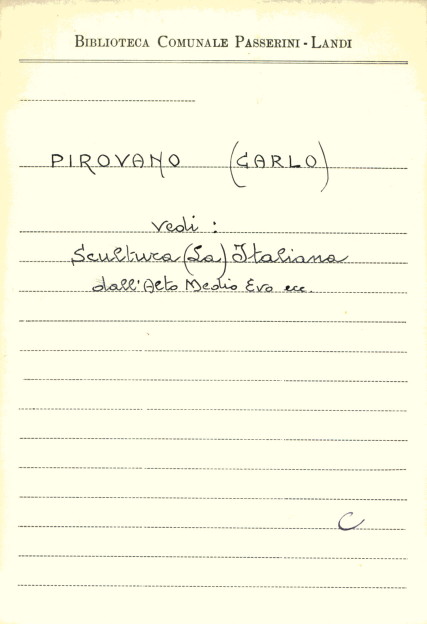 BIBLIOTECA COMUNALE PASSERINI-LANDI
PIROVANO (CARLO)
vedi:
Scultura (La) Italiana
dall'Alto Medio Evo ecc.
C